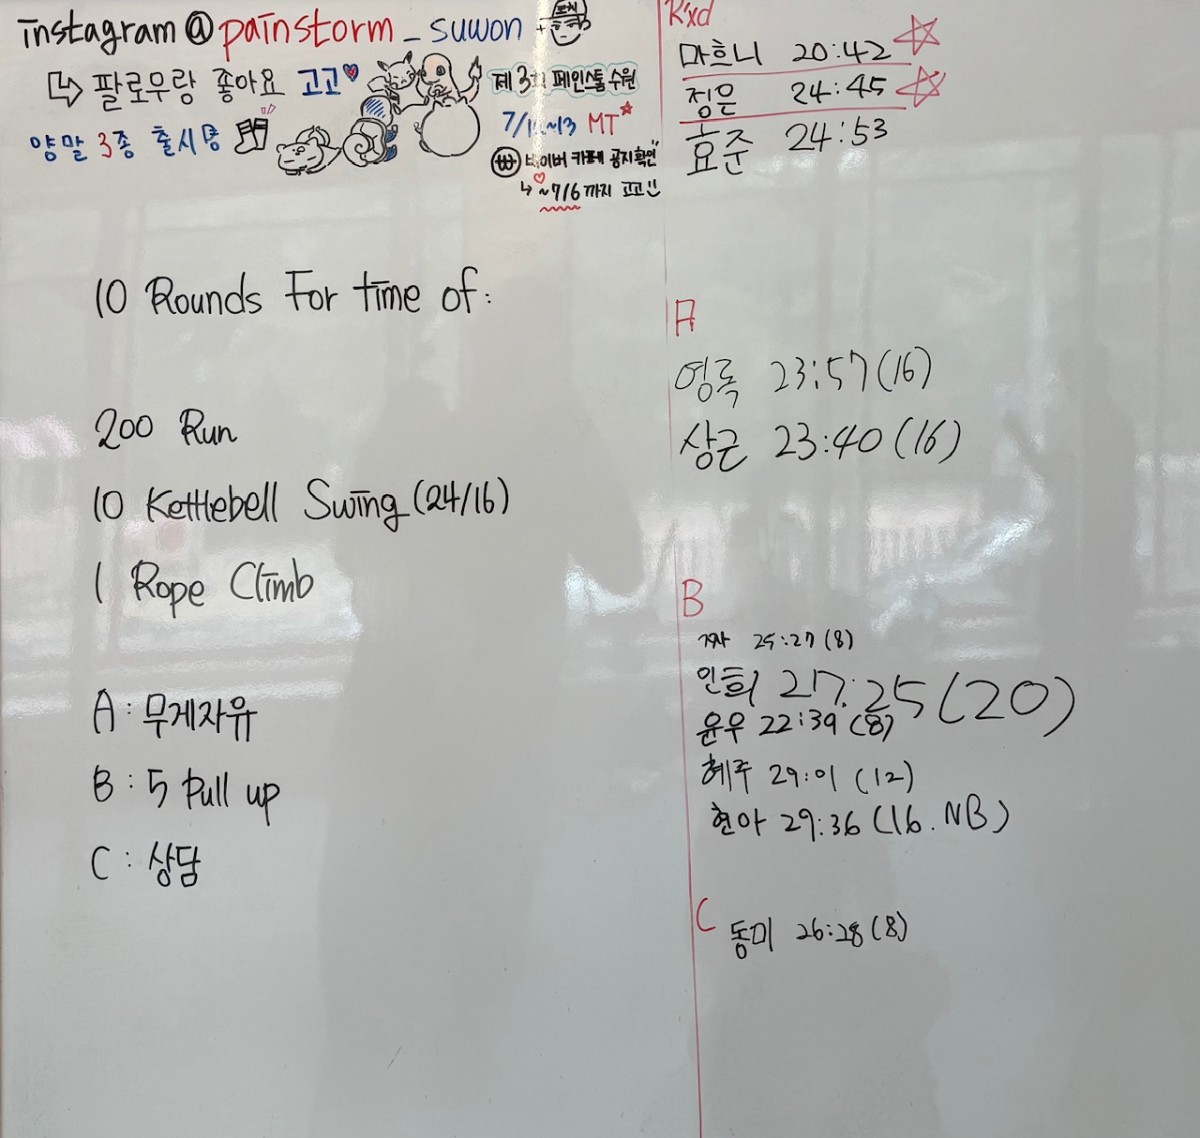 instagram@painstorm_suwon
팔로우랑 좋아요 고고
양말 3종 출시
제 3회 페인스톰 수원
MT
네이버 카페 공지확인
~7/6까지 고고
10 Rounds For time of:
200 Run
10 Kettlebell Swing (24/16)
1 Rope Climb
A : 무게자유
B : 5 Pull up
C : 상담
R'xd
마흐니 20:42
정은 24:45
효준 24:53
A
영록 23:57 (16)
상근 23:40 (16)
B
25:27 (8)
인희 27:25 (20)
윤우 22:39 (8)
혜주 29:01 (12)
현아 29:36 (16. NB)
C
동미 26:28 (8)